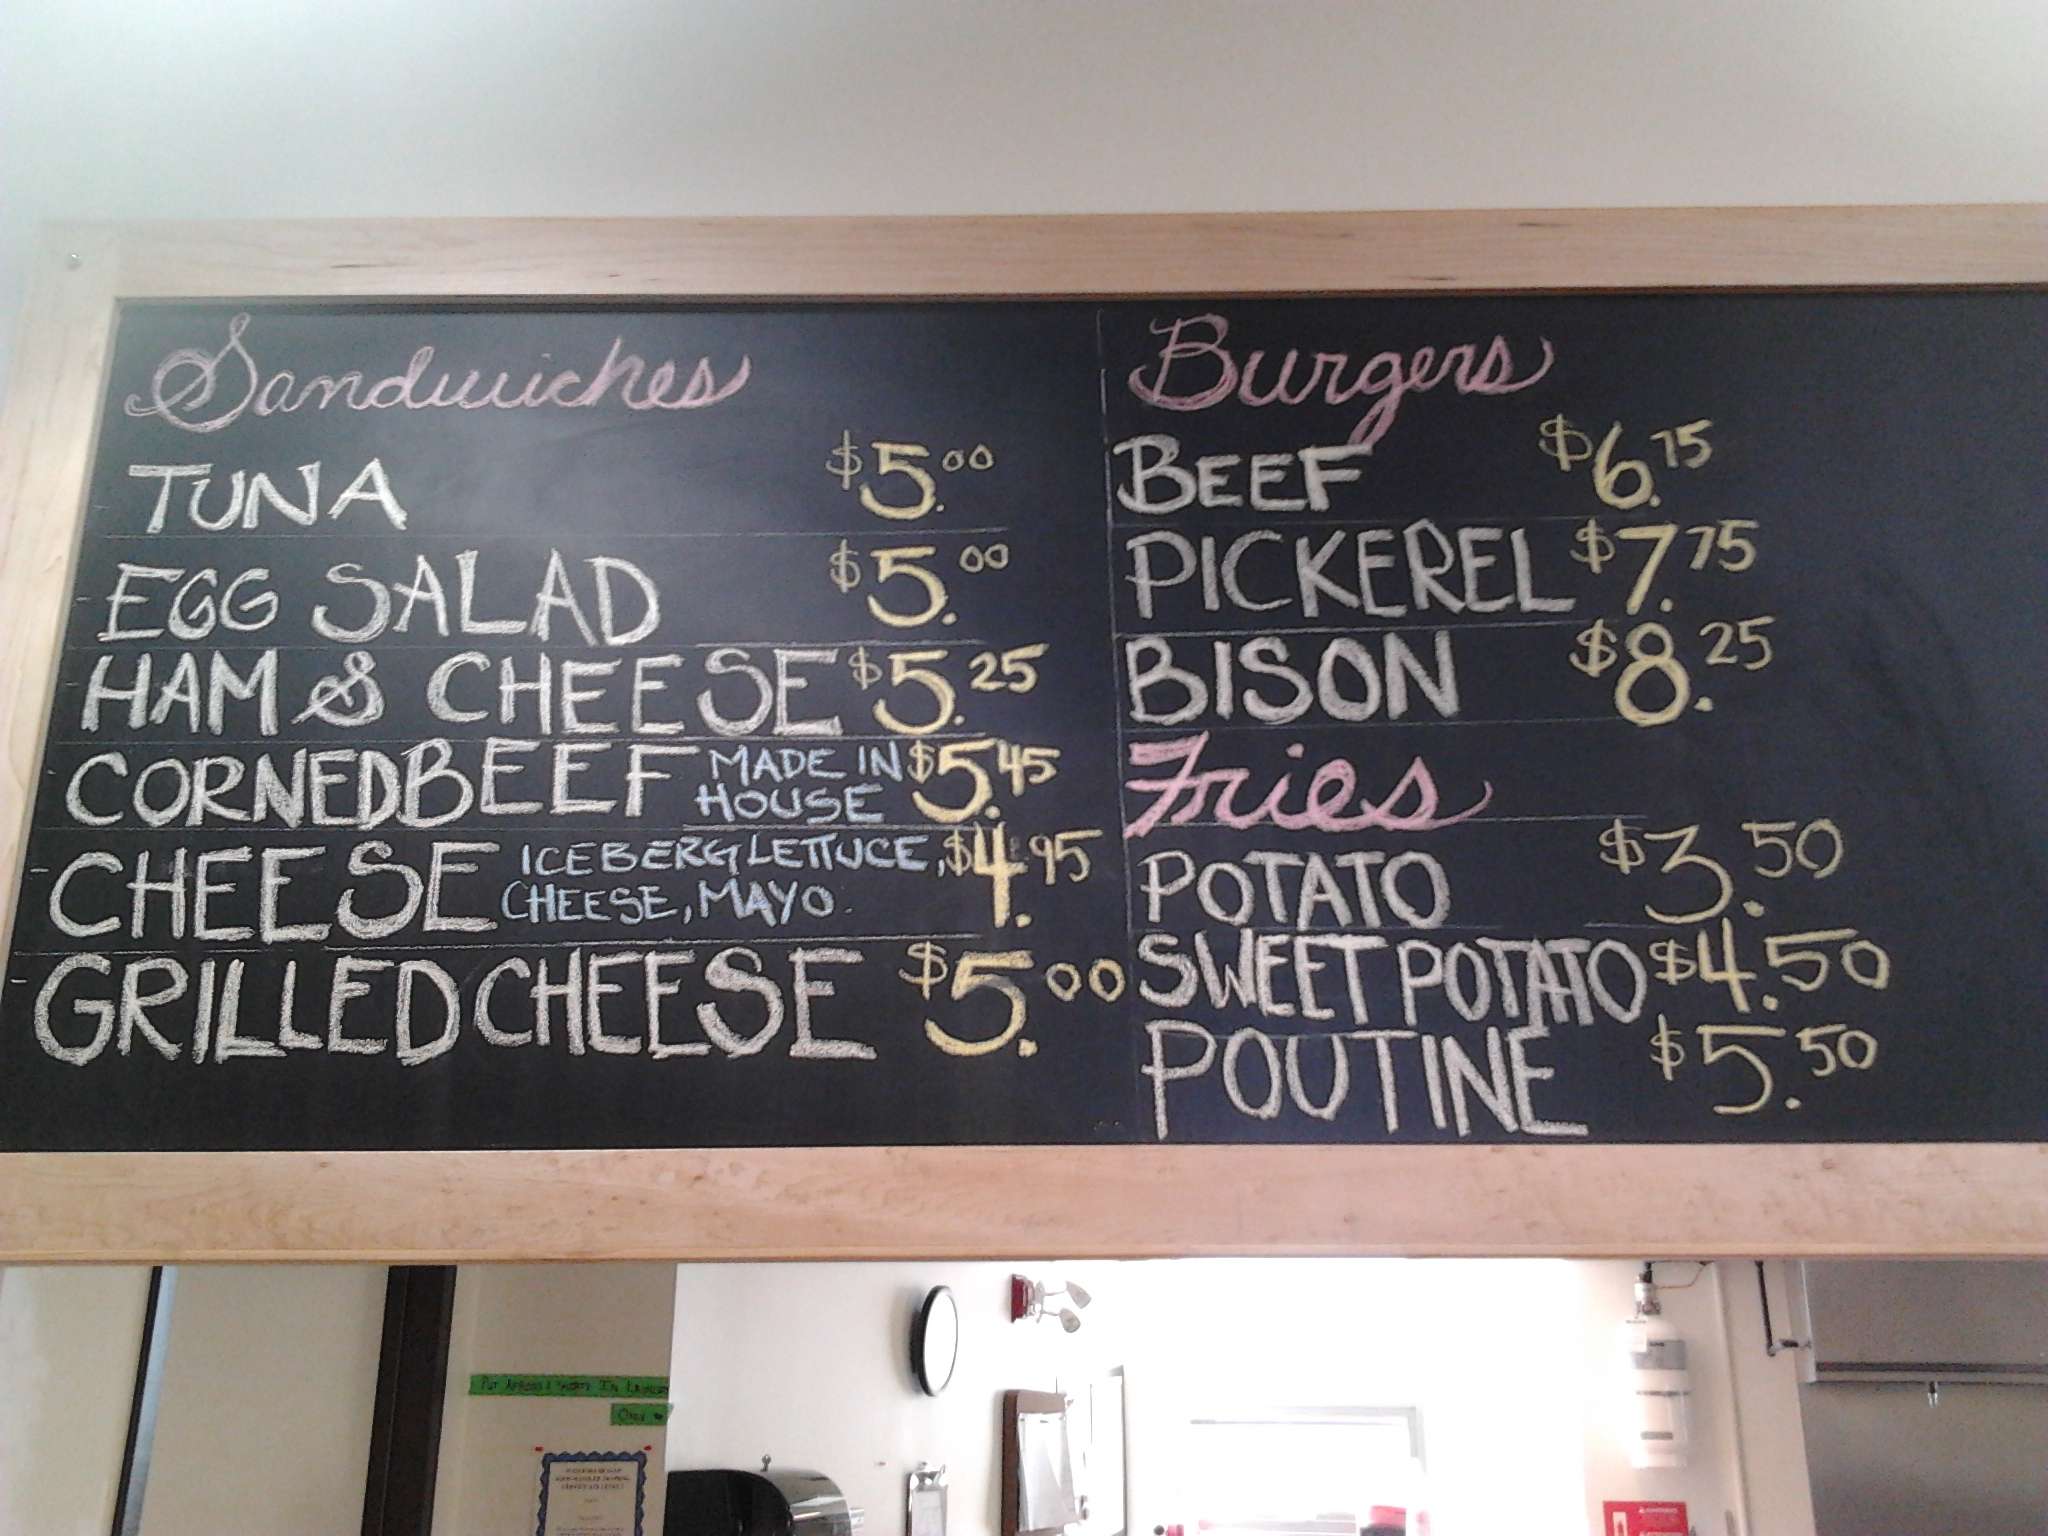 Sandwiches
TUNA $5.00
EGG SALAD $5.00
HAM & CHEESE $5.25
CORNED BEEF MADE IN HOUSE $5.45
CHEESE ICEBERG LETTUCE, CHEESE, MAYO. $4.95
GRILLED CHEESE $5.00
Burgers
BEEF $6.75
PICKEREL $7.75
BISON $8.25
Fries
POTATO $3.50
SWEET POTATO $4.50
POUTINE $5.50
PUT APRONS IN